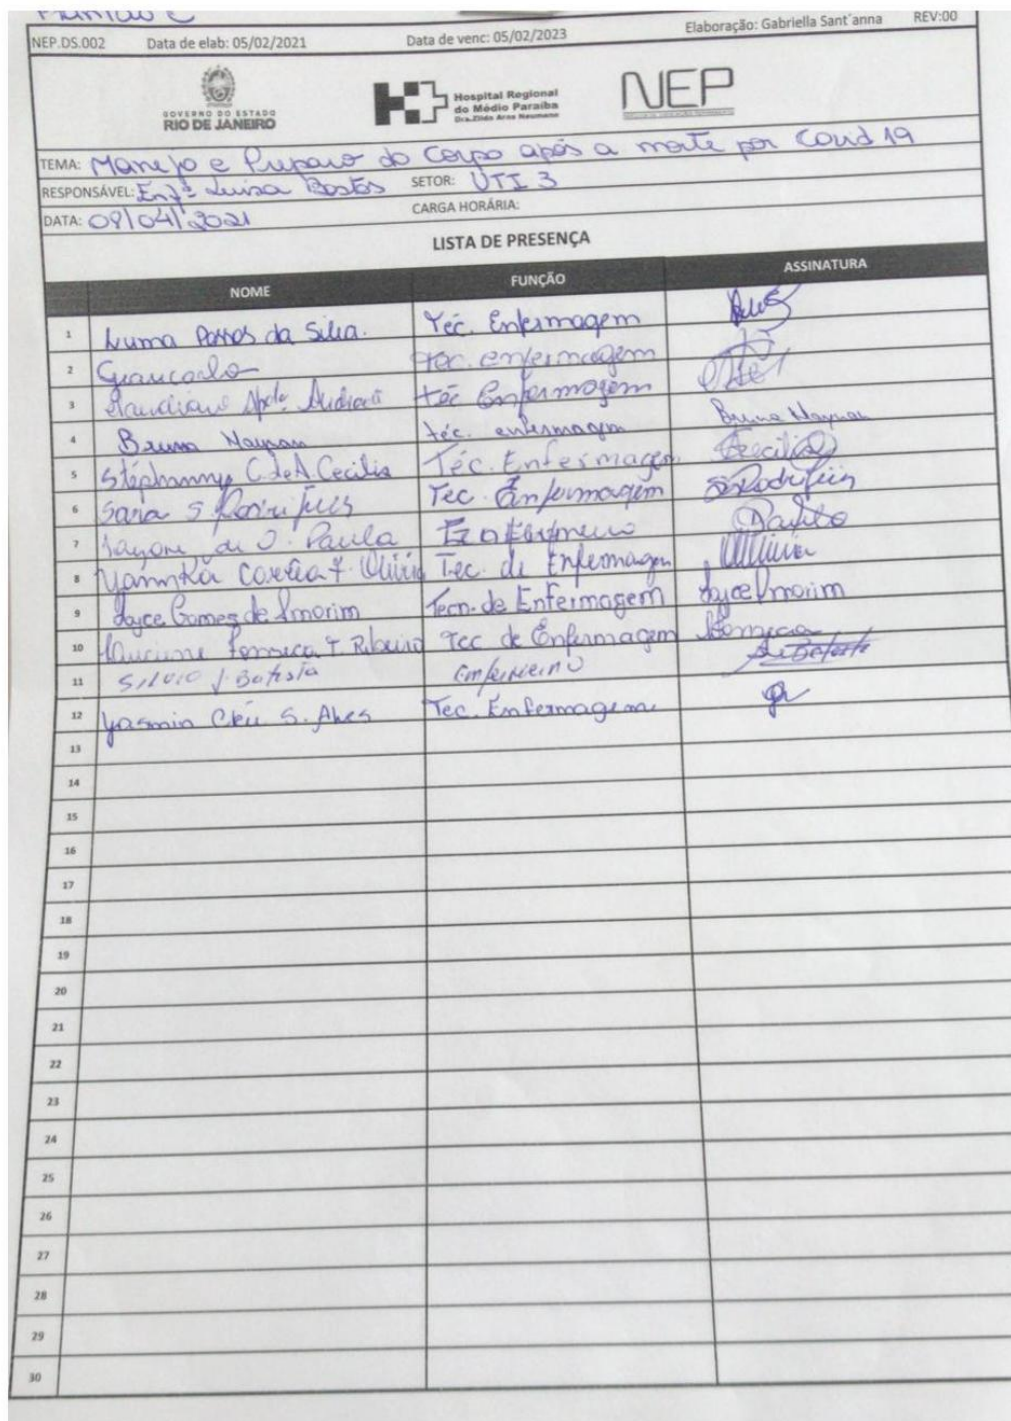 NEP.DS.002 Data de elab: 05/02/2021 Data de venc: 05/02/2023 Elaboração: Gabriella Sant´anna REV:00
GOVERNO DO ESTADO
RIO DE JANEIRO
Hospital Regional
do Médio Paraíba
Dra.Zilda Arns Neumann
NEP
TEMA: Manejo e Preparo do Corpo após a morte por Covid 19
RESPONSÁVEL: Enfª Luisa Bastos SETOR: UTI 3
DATA: 09/04/2021 CARGA HORÁRIA:
LISTA DE PRESENÇA
NOME FUNÇÃO ASSINATURA
1 Luma Passos da Silva. Téc. Enfermagem
2 Giancarlo Tec. enfermagem
3 téc Enfermagem
4 Bruna Nayran téc. enfermagem Bruna Nayran
5 Stéphanny C. de A. Cecilia Téc. Enfermagem Cecilia
6 Sara S. Rodrigues Tec. Enfermagem SRodrigues
7 de O. Paula Enfermeiro
8 Corrêa F. Tec. de Enfermagem
9 Joyce Gomes de Amorim Tecn. de Enfermagem Joyce Amorim
10 Fonseca F. Ribeiro Tec de Enfermagem Fonseca
11 Silvio J. Batista Enfermeiro
12 Yasmin S. Alves Tec. Enfermagem
13
14
15
16
17
18
19
20
21
22
23
24
25
26
27
28
29
30